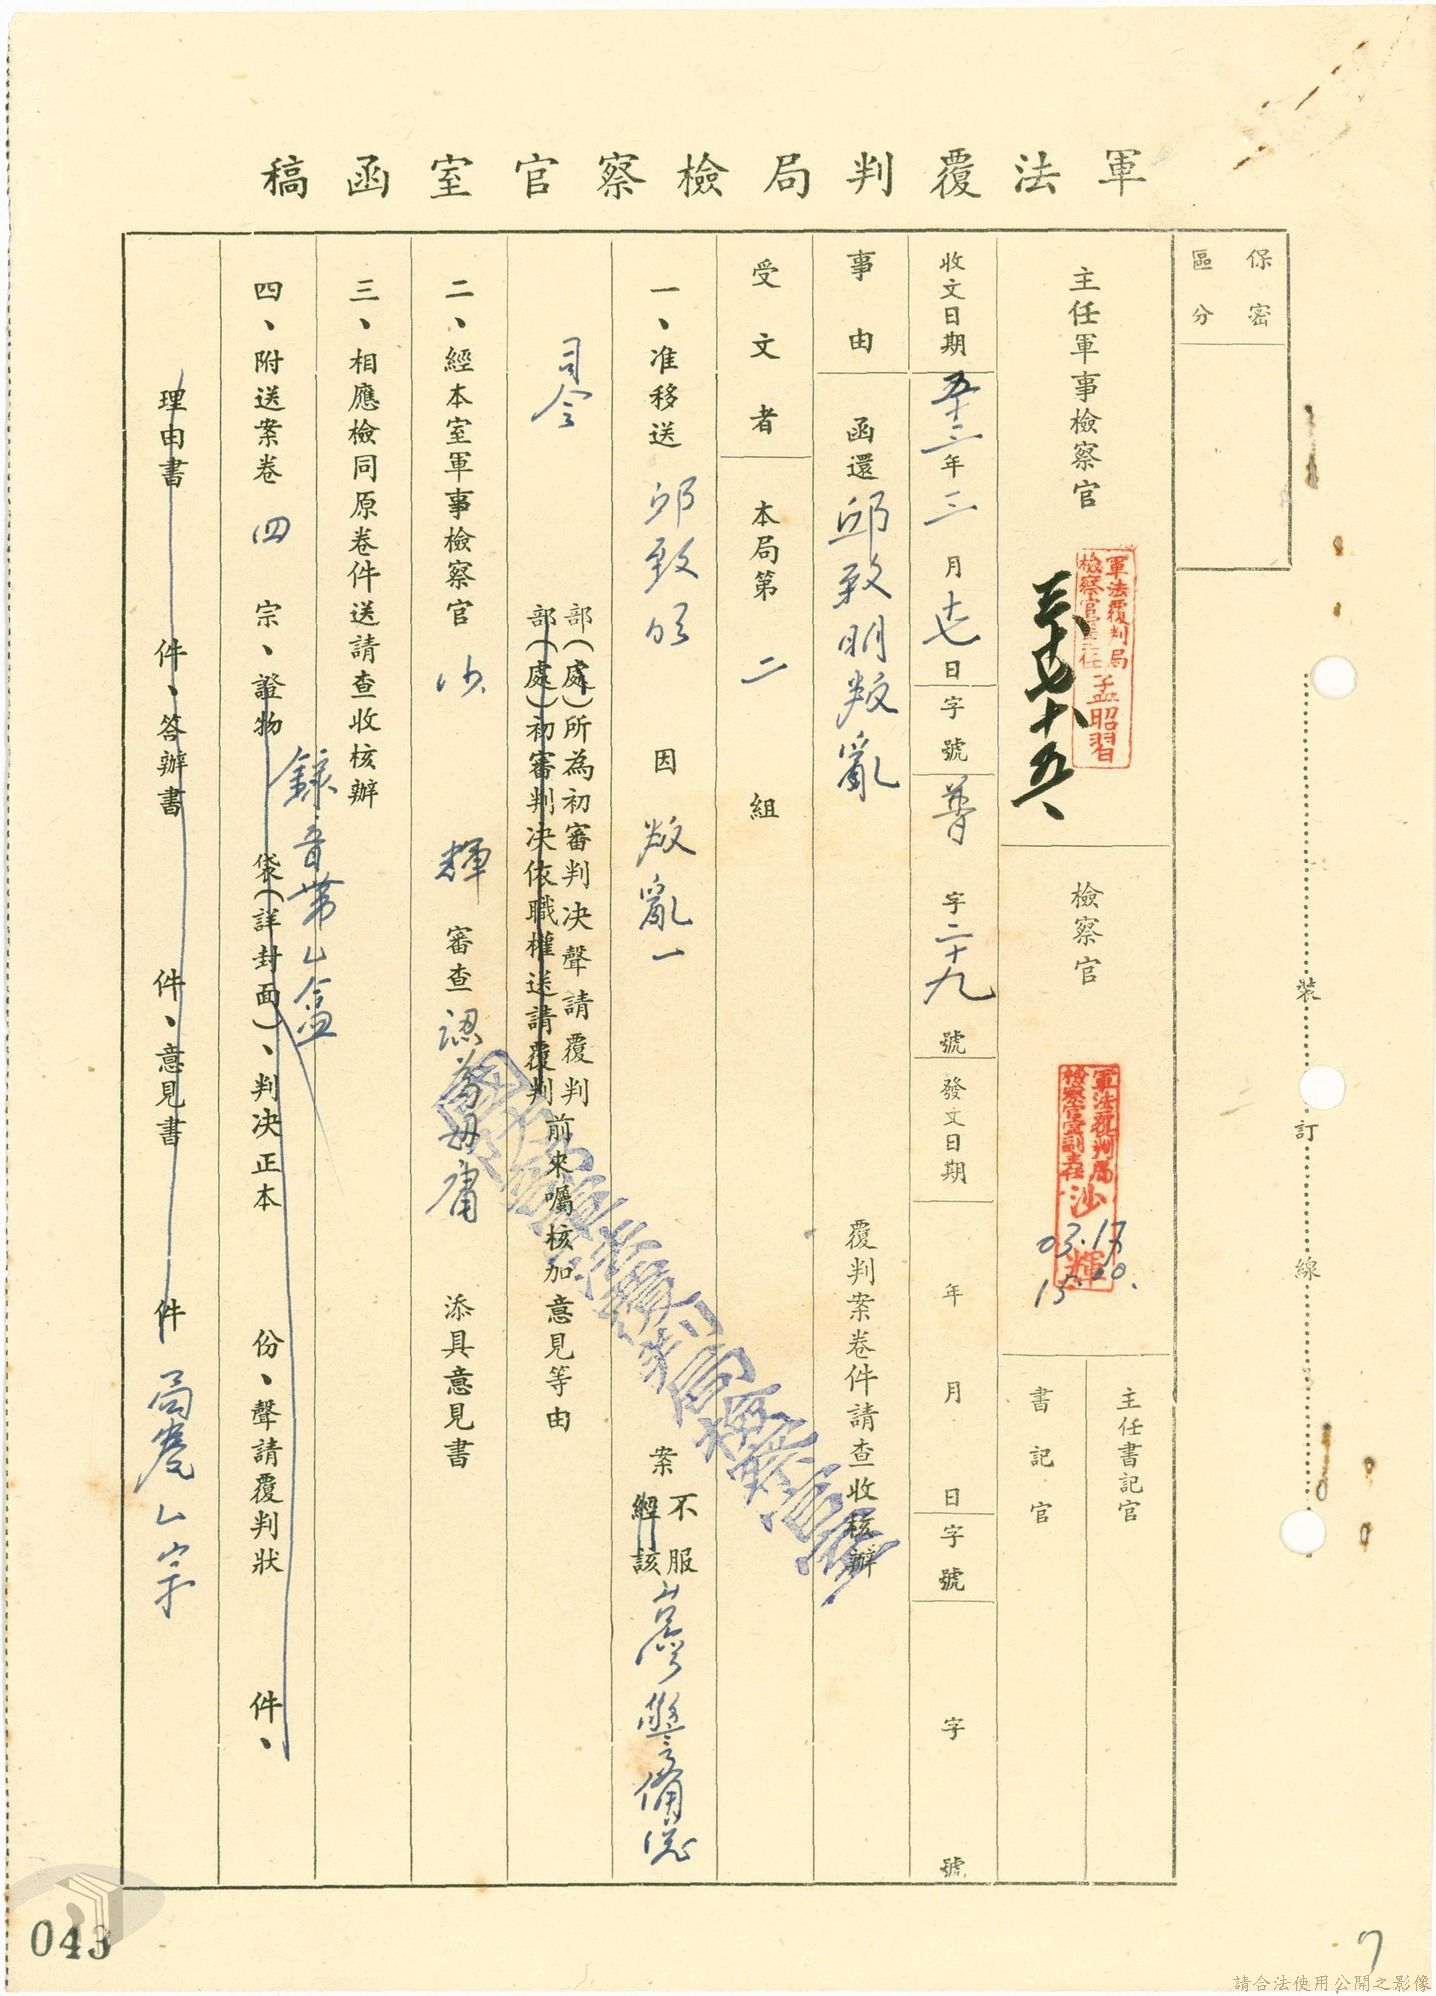 軍法覆判局檢察官室函稿
保密
區分
主任軍事檢察官
軍法覆判局
檢察官室主任
孟昭習
三、十七、十五、
檢察官
軍法覆判局
檢察官室副主任
沙輝
03.17
15.20.
主任書記官
書記官
收文日期 五十三年三月十七日
字號 普字二十九號
發文日期 年 月 日
字號 字 號
事由
函還邱致明叛亂 覆判案卷件請查收核辦
受文者
本局第二組
一、准移送 邱致明 因 叛亂一 案
不服
經該
台灣警備總
司令
部(處)所為初審判決聲請覆判
部(處)初審判決依職權送請覆判
前來囑核加意見等由
二、經本室軍事檢察官 沙 輝 審查 認為毋庸 添具意見書
三、相應檢同原卷件送請查收核辦
錄音帶乙盒
四、附送案卷 四 宗、證物 袋(詳封面)、判決正本 份、聲請覆判狀 件、
理由書 件、答辯書 件、意見書 件 局卷乙宗
國防部軍法覆判局檢察官室
裝
訂
線
043
7
請合法使用公開之影像